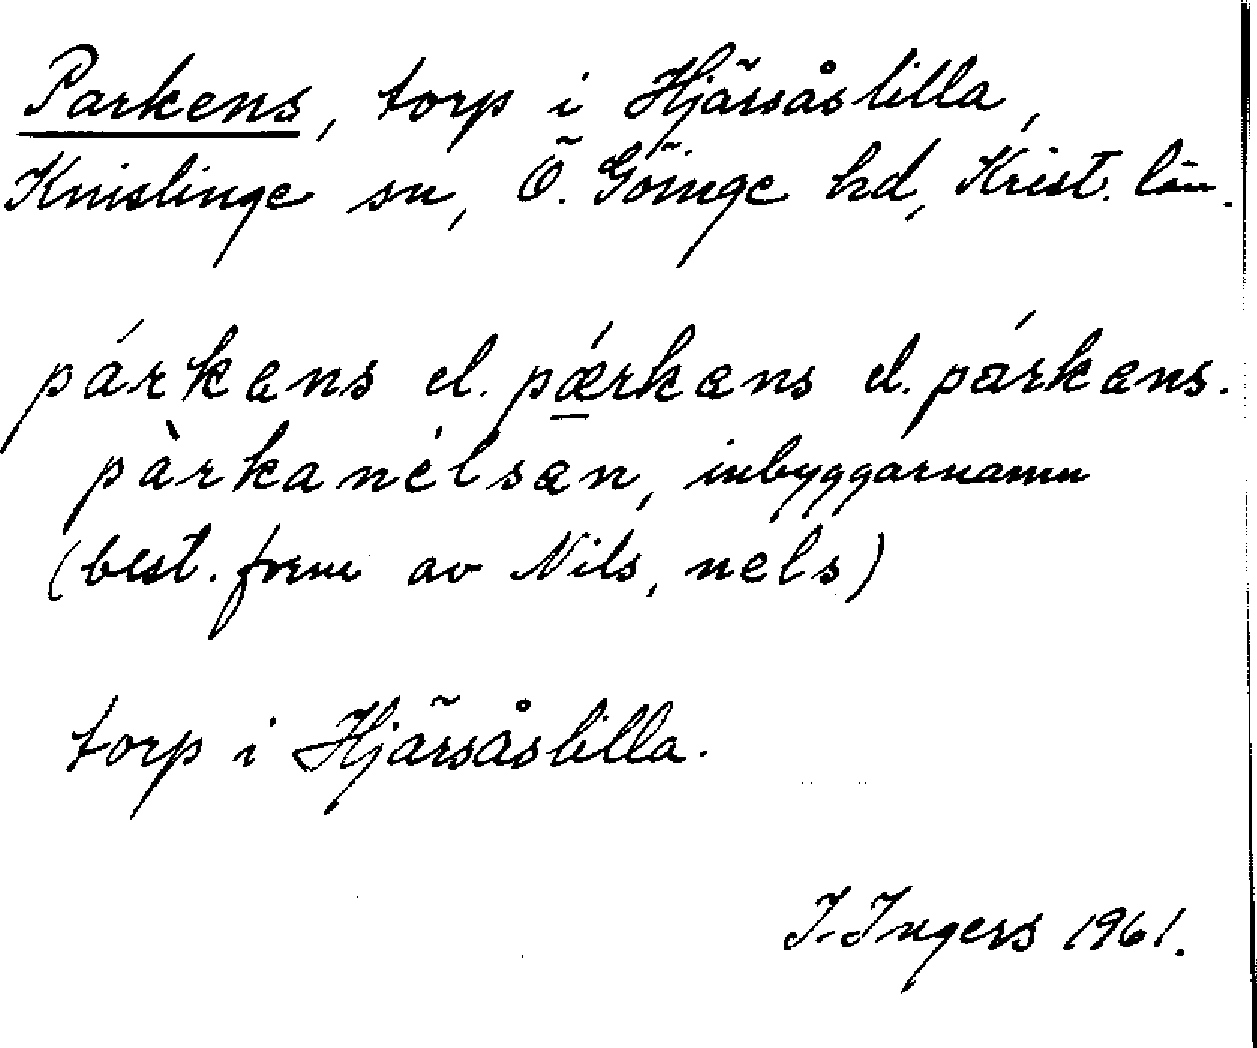 Parkens, torp i Hjärsåslilla,
Knislinge sn, Ö. Göinge hd, Krist. län.
párkæns el. pǽrkæns el. pɑ́rkæns.
pàrkanélsæn, inbyggarnamn
(best. form av Nils, nels)
torp i Hjärsåslilla.
I. Ingers 1961.